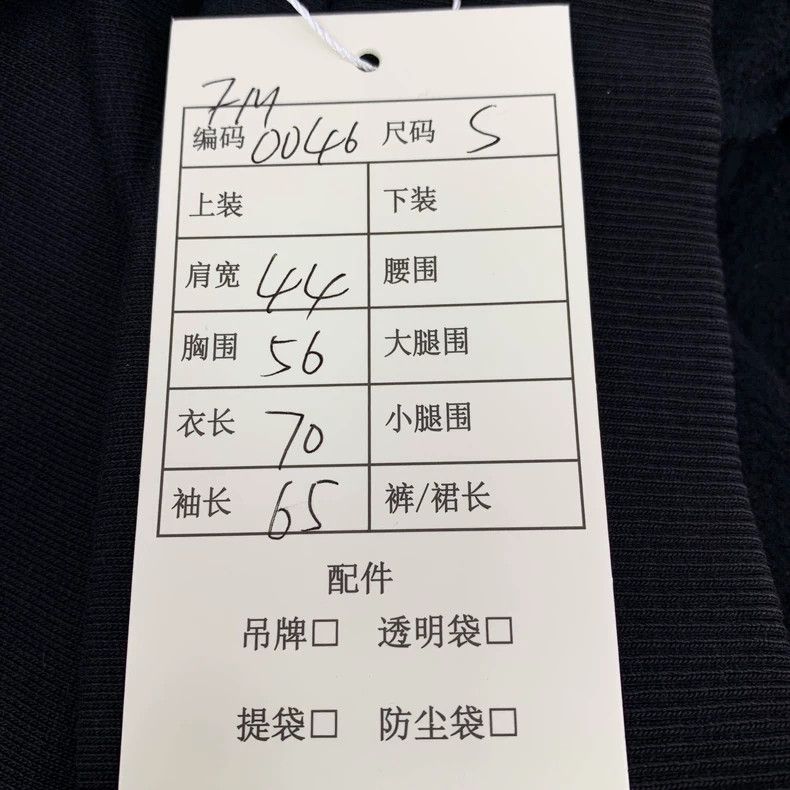 FM
编码 0046 尺码 S
上装 下装
肩宽 44 腰围
胸围 56 大腿围
衣长 70 小腿围
袖长 65 裤/裙长
配件
吊牌□ 透明袋□
提袋□ 防尘袋□